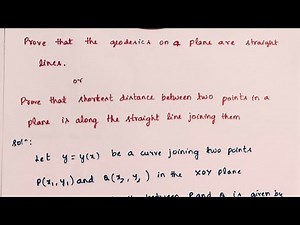 Prove that the geodesics on a plane are straight
lines.
or
Prove that shortest distance between two points in a
plane is along the straight line joining them
Soln:
Let y = y(x) be a curve joining two points
P(x₁, y₁) and Q(x₂, y₂) in the XOY plane
between P and Q is given by